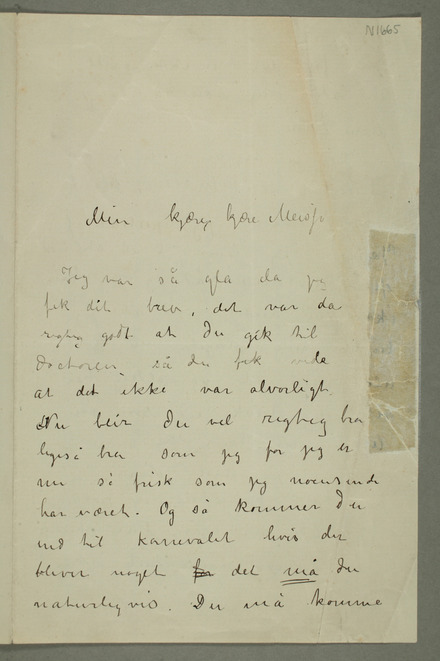 N 1665
Min kjære, kjære
Jeg var så gla da jeg
fik dit brev, det var da
rigtig godt at du gik til
doctoren, så du fik vide
at det ikke var alvorligt.
Nu beir du vel rigtig bra
ligeså bra som jeg for jeg er
nu så frisk som jeg noensinde
har været. Og så kommer du
ind til karnevalet hvis der
bliver noget for det må du
naturligvis. Du må komme